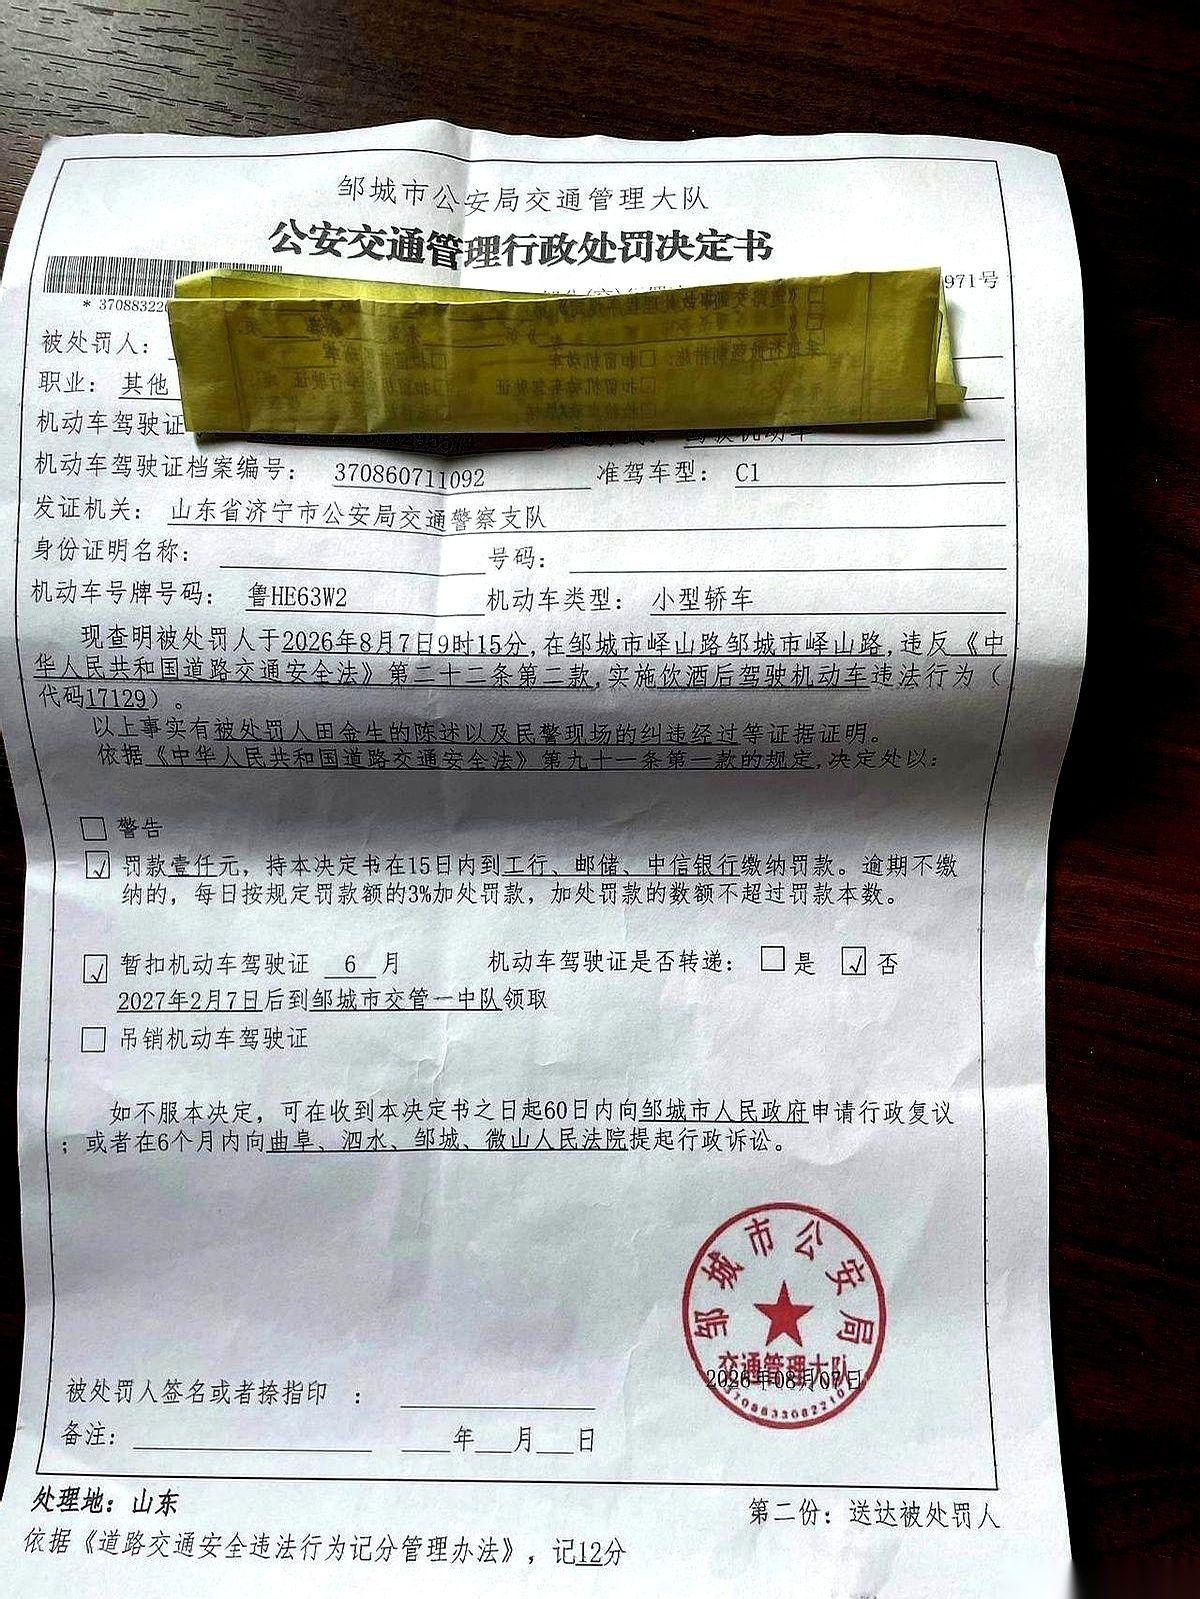 邹城市公安局交通管理大队
公安交通管理行政处罚决定书
971号
* 37088322
被处罚人：
职业： 其他
机动车驾驶证
机动车驾驶证档案编号： 370860711092 准驾车型： C1
发证机关： 山东省济宁市公安局交通警察支队
身份证明名称： 号码：
机动车号牌号码： 鲁HE63W2 机动车类型： 小型轿车
现查明被处罚人于2026年8月7日9时15分,在邹城市峄山路邹城市峄山路,违反《中
华人民共和国道路交通安全法》第二十二条第二款,实施饮酒后驾驶机动车违法行为（
代码17129）。
以上事实有被处罚人田金生的陈述以及民警现场的纠违经过等证据证明。
依据《中华人民共和国道路交通安全法》第九十一条第一款的规定,决定处以:
□ 警告
☑ 罚款壹仟元，持本决定书在15日内到工行、邮储、中信银行缴纳罚款。逾期不缴
纳的，每日按规定罚款额的3%加处罚款，加处罚款的数额不超过罚款本数。
☑ 暂扣机动车驾驶证 6 月 机动车驾驶证是否转递： □ 是 ☑ 否
2027年2月7日后到邹城市交管一中队领取
□ 吊销机动车驾驶证
如不服本决定，可在收到本决定书之日起60日内向邹城市人民政府申请行政复议
；或者在6个月内向曲阜、泗水、邹城、微山人民法院提起行政诉讼。
邹城市公安局
交通管理大队
2026年08月07日
3708833082210
被处罚人签名或者捺指印 ：
备注： 年 月 日
处理地：山东
第二份：送达被处罚人
依据《道路交通安全违法行为记分管理办法》，记12分